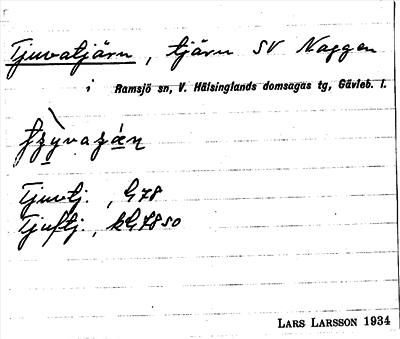 Tjuvatjärn, tjärn SV Naggen
i Ramsjö sn, V. Hälsinglands domsagas tg, Gävleb. l.
Tjuvtj., G78
Tjuftj., kG78 SO
LARS LARSSON 1934